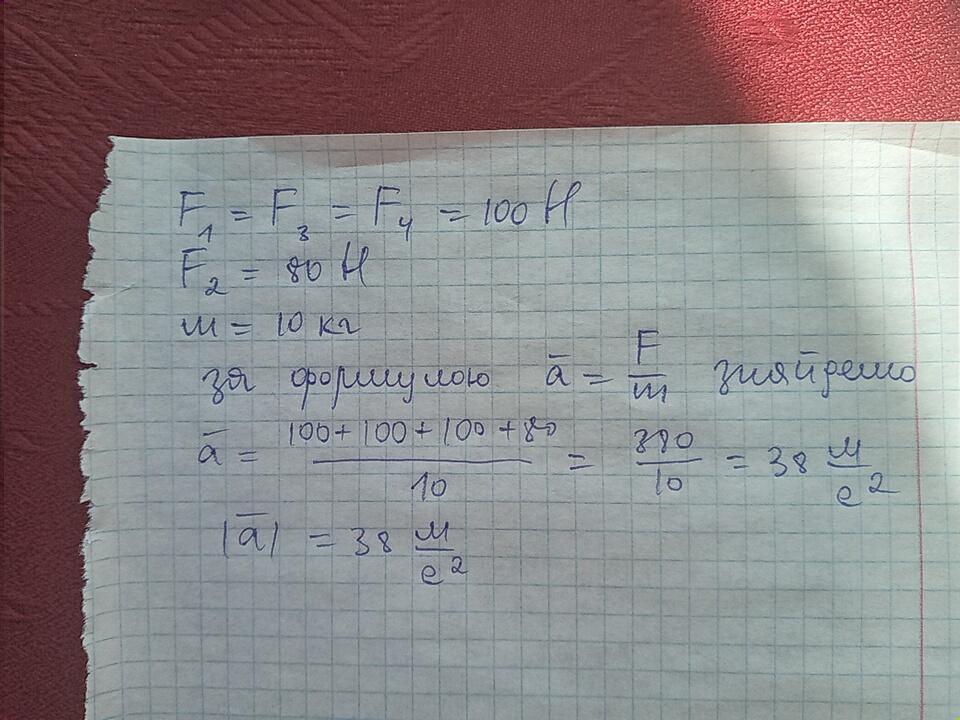 F₁ = F₃ = F₄ = 100 Н
F₂ = 80 Н
m = 10 кг
за формулою ā = F/m знайдемо
ā = (100 + 100 + 100 + 80)/10 = 380/10 = 38 м/с²
|ā| = 38 м/с²